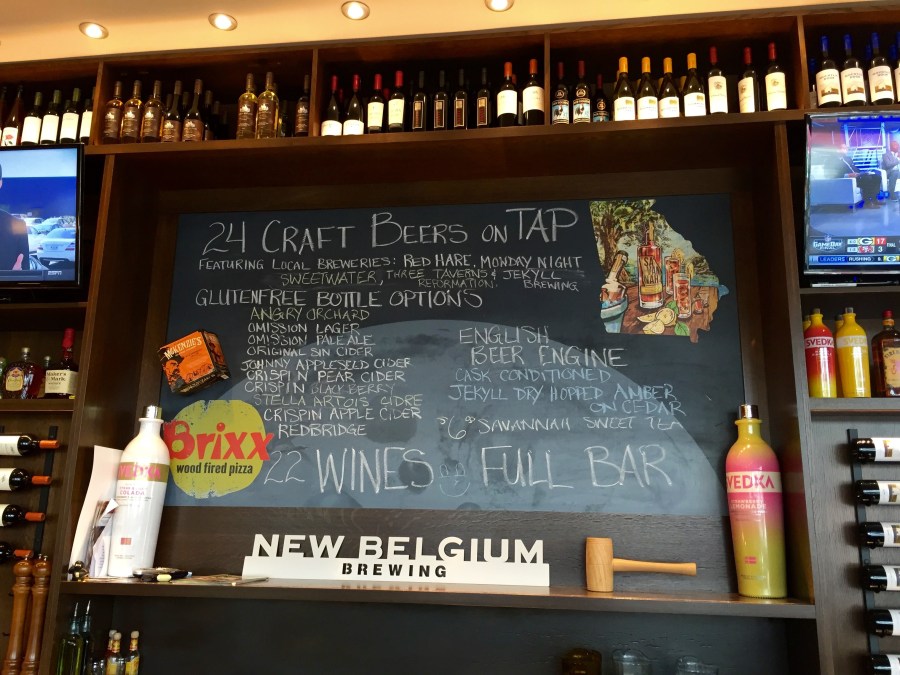 24 CRAFT BEERS ON TAP
FEATURING LOCAL BREWERIES: RED HARE, MONDAY NIGHT
SWEETWATER, THREE TAVERNS & JEKYLL
REFORMATION. BREWING
GLUTENFREE BOTTLE OPTIONS
ANGRY ORCHARD
OMISSION LAGER
OMISSION PALE ALE
ORIGINAL SIN CIDER
JOHNNY APPLESEED CIDER
CRISPIN PEAR CIDER
CRISPIN BLACKBERRY
STELLA ARTOIS CIDRE
CRISPIN APPLE CIDER
REDBRIDGE
ENGLISH
BEER ENGINE
CASK CONDITIONED
JEKYLL DRY HOPPED AMBER
ON CEDAR
$6.00 SAVANNAH SWEET TEA
22 WINES FULL BAR
McKENZIE'S
Brixx
wood fired pizza
NEW BELGIUM
BREWING
SVEDKA
COLADA
SVEDKA
LEMONADE
SVEDKA
SVEDKA
Maker's
Mark
ESPN
GAMEDAY
G 17
SF 3
FINAL
LEADERS RUSHING